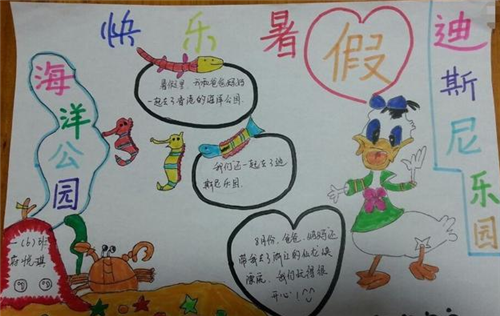 快乐暑假
海洋公园
迪斯尼乐园
暑假里,我和爸爸妈妈
一起去了香港的海洋公园.
我们还一起去了迪
斯尼乐园.
8月份,爸爸、妈妈还
带我去了浙江的仙龙峡
漂流,我们玩得很
开心!
一(6)班
悦琪